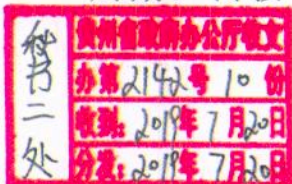 秘书二处
贵州省政府办公厅收文
办第2142号 10份
收到：2019年7月20日
分发：2019年7月20日